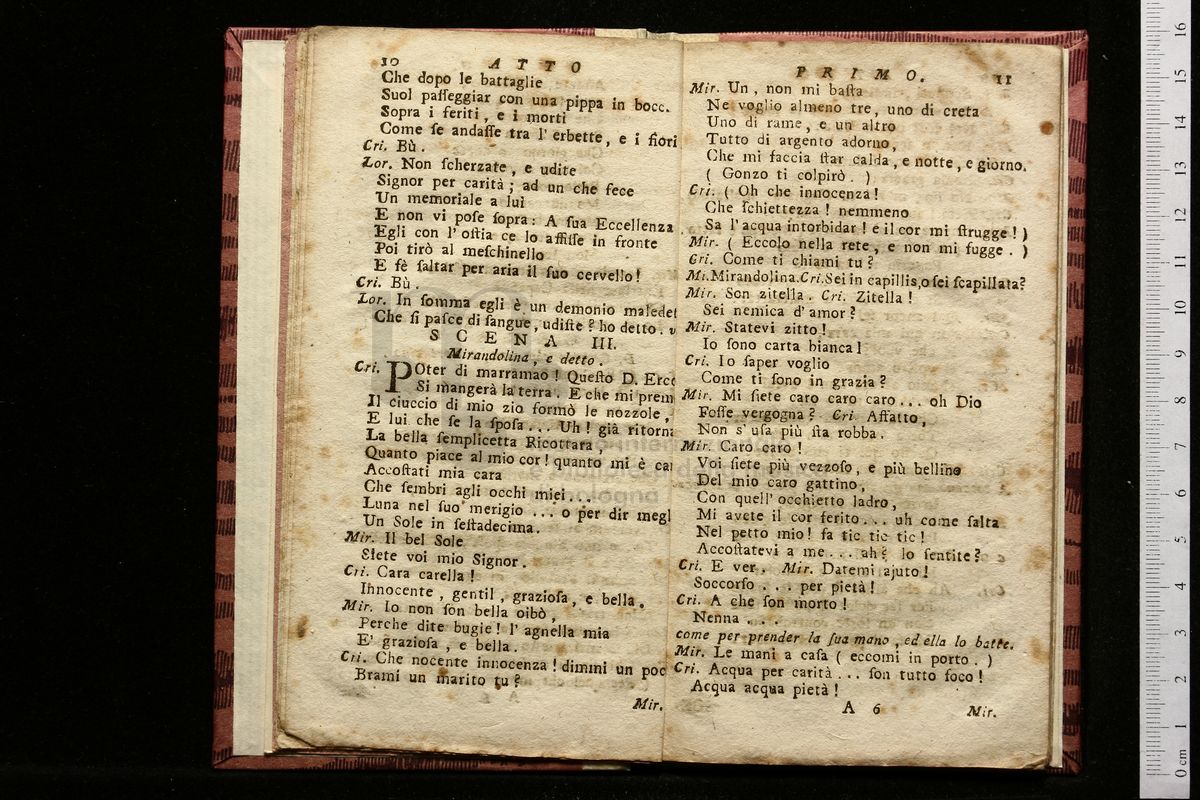 10 ATTO
Che dopo le battaglie
Suol paſſeggiar con una pippa in bocc.
Sopra i feriti, e i morti
Come ſe andaſſe tra l' erbette, e i fiori
Cri. Bù.
Lor. Non ſcherzate, e udite
Signor per carità; ad un che fece
Un memoriale a lui
E non vi poſe ſopra: A ſua Eccellenza
Egli con l' oſtia ce lo affiſſe in fronte
Poi tirò al meſchinello
E fè ſaltar per aria il ſuo cervello!
Cri. Bù.
Lor. In ſomma egli è un demonio maledet
Che ſi paſce di ſangue, udiſte? ho detto. v
SCENA III.
Mirandolina, e detto.
Cri. POter di marramao! Queſto D. Erco
Si mangerà la terra. E che mi prem
Il ciuccio di mio zio formò le nozzole,
E lui che ſe la ſpoſa... Uh! già ritorna
La bella ſemplicetta Ricottara,
Quanto piace al mio cor! quanto mi è car
Accoſtati mia cara
Che ſembri agli occhi miei...
Luna nel ſuo merigio ... o per dir megl
Un Sole in ſeſtadecima.
Mir. Il bel Sole
Siete voi mio Signor.
Cri. Cara carella!
Innocente, gentil, grazioſa, e bella.
Mir. Io non ſon bella oibò,
Perche dite bugie! l' agnella mia
E' grazioſa, e bella.
Cri. Che nocente innocenza! dimmi un poc
Brami un marito tu?
Mir.
PRIMO. 11
Mir. Un, non mi baſta
Ne voglio almeno tre, uno di creta
Uno di rame, e un altro
Tutto di argento adorno,
Che mi faccia ſtar calda, e notte, e giorno.
( Gonzo ti colpirò. )
Cri. ( Oh che innocenza!
Che ſchiettezza! nemmeno
Sa l' acqua intorbidar! e il cor mi ſtrugge! )
Mir. ( Eccolo nella rete, e non mi fugge. )
Cri. Come ti chiami tu?
Mi. Mirandolina. Cri. Sei in capillis, o ſei ſcapillata?
Mir. Son zitella. Cri. Zitella!
Sei nemica d' amor?
Mir. Statevi zitto!
Io ſono carta bianca!
Cri. Io ſaper voglio
Come ti ſono in grazia?
Mir. Mi ſiete caro caro caro... oh Dio
Foſſe vergogna? Cri. Affatto,
Non s' uſa più ſta robba.
Mir. Caro caro!
Voi ſiete più vezzoſo, e più bellino
Del mio caro gattino,
Con quell' occhietto ladro,
Mi avete il cor ferito... uh come ſalta
Nel petto mio! fa tic tic tic!
Accoſtatevi a me... ah? lo ſentite?
Cri. E ver. Mir. Datemi ajuto!
Soccorſo ... per pietà!
Cri. A che ſon morto!
Nenna ...
come per prender la ſua mano, ed ella lo batte.
Mir. Le mani a caſa ( eccomi in porto. )
Cri. Acqua per carità... ſon tutto foco!
Acqua acqua pietà!
A 6 Mir.
0 cm 1 2 3 4 5 6 7 8 9 10 11 12 13 14 15 16